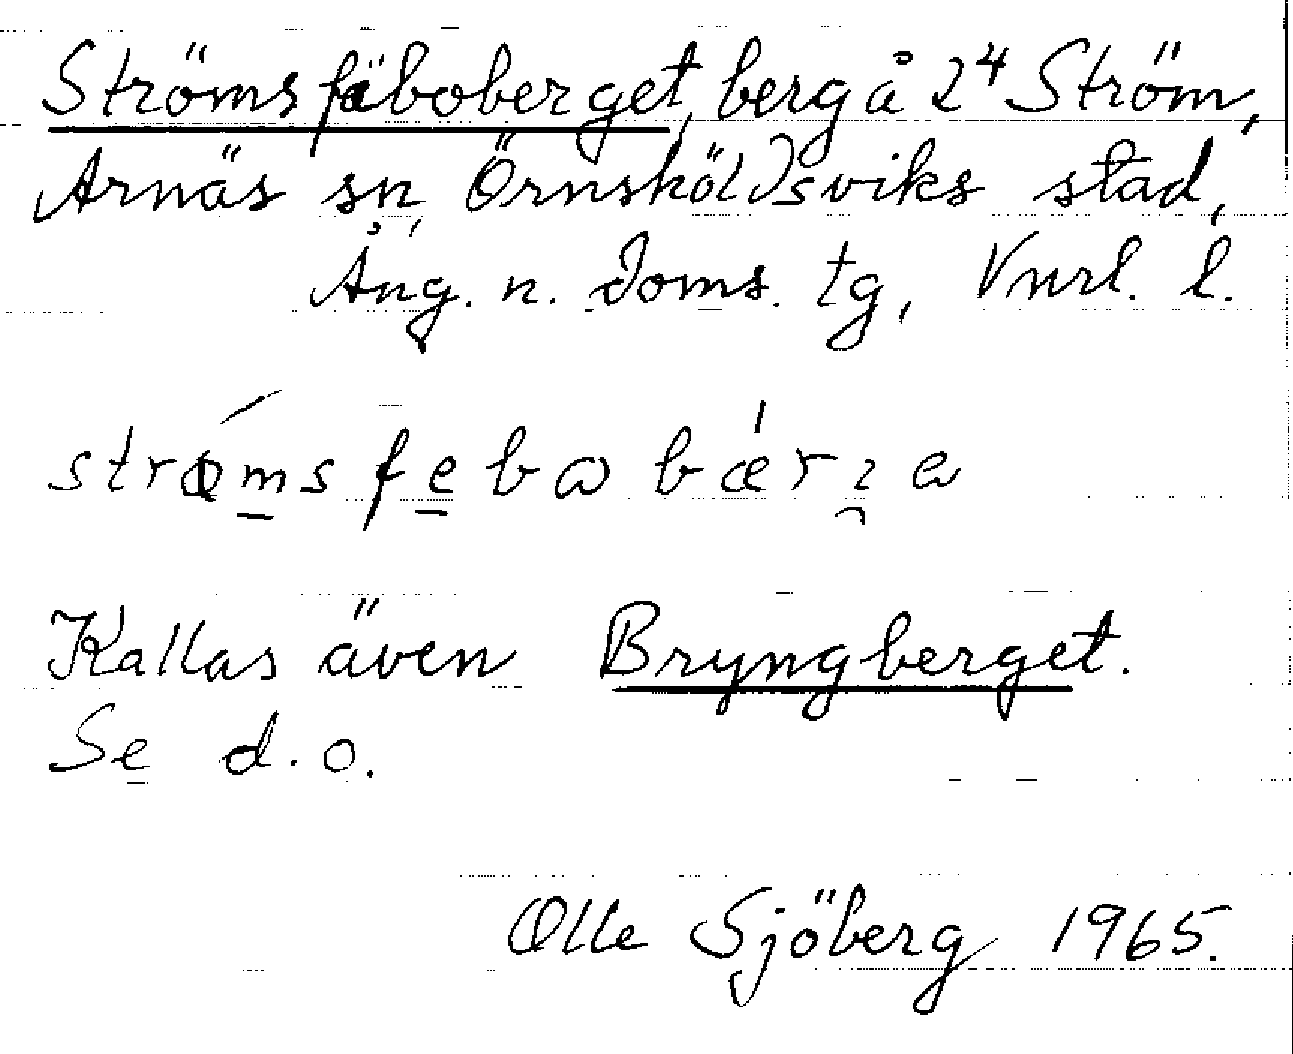 Strömsfäboberget, berg å 2⁴ Ström,
Arnäs sn, Örnsköldsviks stad,
Ång. n. Doms. tg, Vnrl. l.
strømsfebωbærɿe
Kallas även Bryngberget.
Se d.o.
Olle Sjöberg 1965.